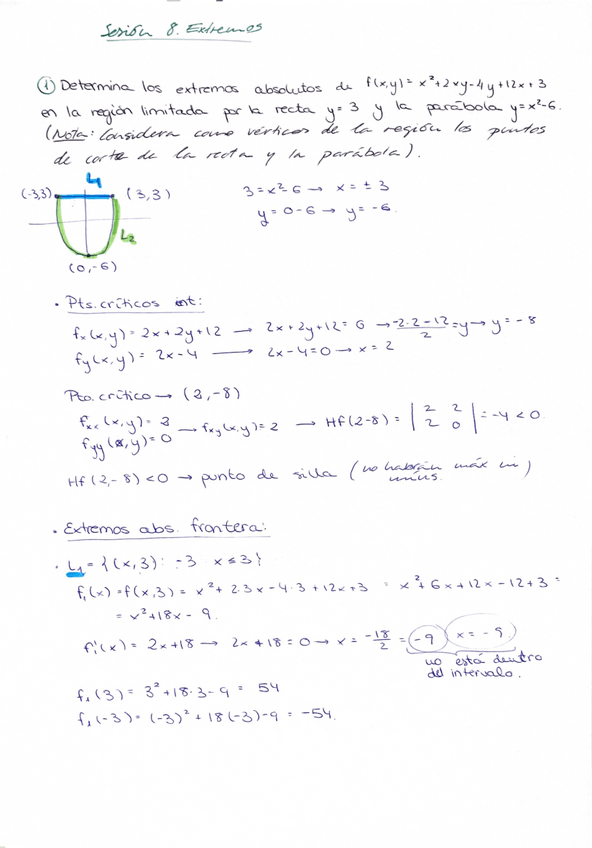 Sesión 8. Extremos
① Determina los extremos absolutos de f(x,y)= x²+2xy-4y+12x+3
en la región limitada por la recta y=3 y la parábola y=x²-6.
(Nota: Considera como vértices de la región los puntos
de corte de la recta y la parábola).
L1
(-3,3) (3,3)
L2
(0,-6)
3=x²-6 → x = ± 3
y = 0-6 → y = -6.
• Pts. críticos int:
fx(x,y)= 2x+2y+12 → 2x+2y+12= 6 → -2·2-12/2 =y → y= -8
fy(x,y)= 2x-4 → 2x-4=0 → x=2
Pto. crítico → (2,-8)
fxx(x,y)= 2
fyy(x,y)= 0 → fxy(x,y)=2 → Hf(2-8) = | 2 2 2 0 | = -4 < 0
Hf(2,-8) <0 → punto de silla (no habrán máx ni
• Extremos abs. frontera:
• L1= {(x,3): -3 x ≤ 3}
f1(x)=f(x,3) = x²+ 2·3x -4·3+12x+3 = x²+6x+12x-12+3 =
= x²+18x - 9.
f1'(x) = 2x+18 → 2x+18=0 → x = -18/2 = -9 x = -9
no está dentro
del intervalo.
f1(3) = 3²+18·3-9 = 54
f1(-3)= (-3)²+18(-3)-9 = -54.